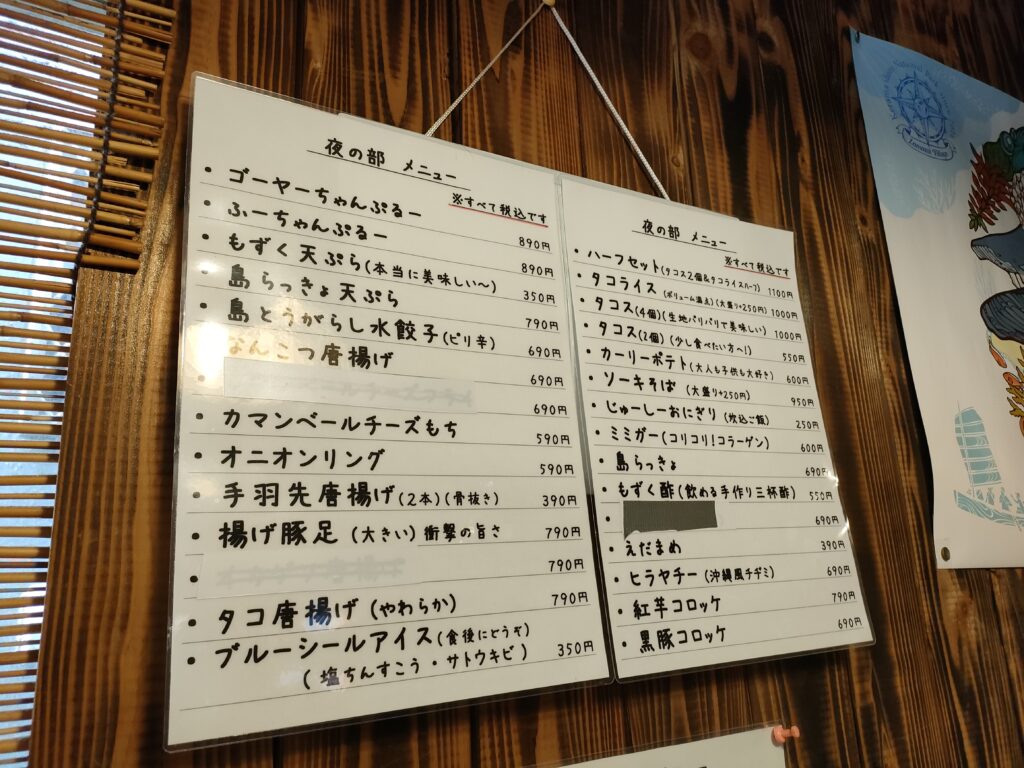 夜の部 メニュー
※すべて税込です
・ゴーヤーちゃんぷるー 890円
・ふーちゃんぷるー 890円
・もずく天ぷら(本当に美味しい〜) 350円
・島らっきょ天ぷら 790円
・島とうがらし水餃子(ピリ辛) 690円
なんこつ唐揚げ 690円
・ 690円
・カマンベールチーズもち 590円
・オニオンリング 590円
・手羽先唐揚げ(2本)(骨抜き) 390円
・揚げ豚足(大きい)衝撃の旨さ 790円
・ 790円
・タコ唐揚げ(やわらか) 790円
・ブルーシールアイス(食後にどうぞ) 350円
(塩ちんすこう・サトウキビ)
夜の部 メニュー
※すべて税込です
・ハーフセット(タコス2個&タコライスハーフ) 1100円
・タコライス(ボリューム満点)(大盛り+250円) 1000円
・タコス(4個)(生地パリパリで美味しい) 1000円
・タコス(2個)(少し食べたい方へ!) 550円
・カーリーポテト(大人も子供も大好き) 600円
・ソーキそば(大盛り+250円) 950円
・じゅーしーおにぎり(炊込ご飯) 250円
・ミミガー(コリコリ!コラーゲン) 600円
・島らっきょ 690円
・もずく酢(飲める手作り三杯酢) 550円
・ 690円
・えだまめ 390円
・ヒラヤチー(沖縄風チヂミ) 690円
・紅芋コロッケ 790円
・黒豚コロッケ 690円